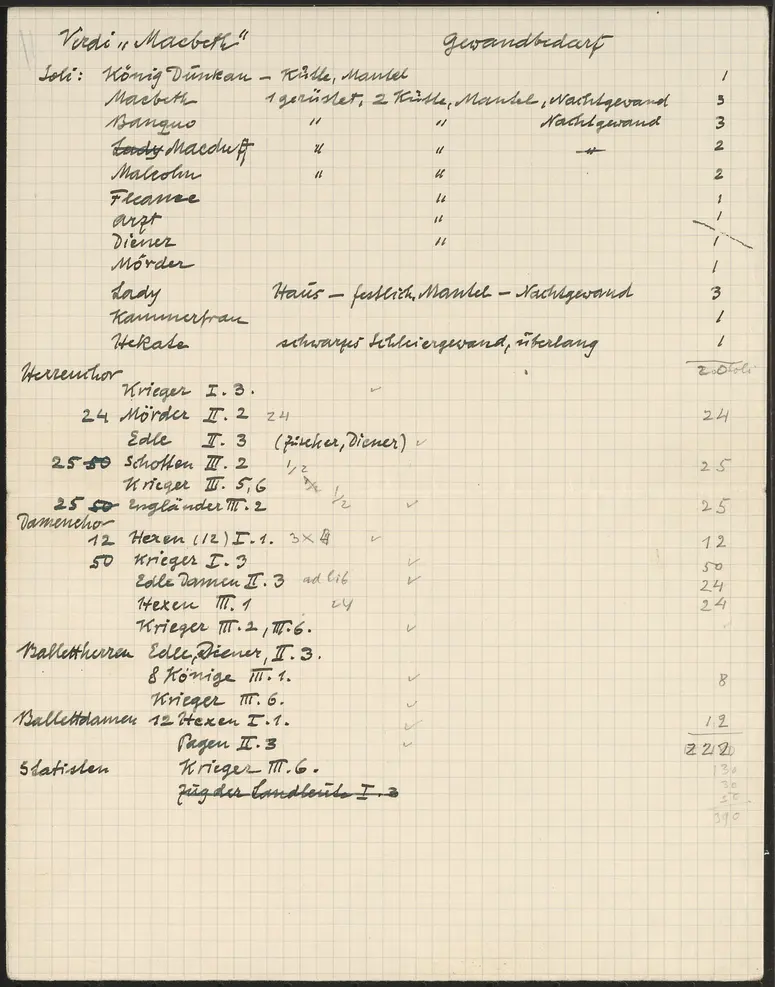 Verdi „Macbeth" Gewandbedarf
Soli: König Dunkan – Kutte, Mantel 1
Macbeth 1 gerüstet, 2 Kutte, Mantel, Nachtgewand 3
Banquo " " Nachtgewand 3
Lady Macduff " " " 2
Malcolm " " 2
Fleance " 1
Arzt " 1
Diener " 1
Mörder 1
Lady Haus – festlich, Mantel – Nachtgewand 3
Kammerfrau 1
Hekate schwarzes Schleiergewand, überlang 1
Herrenchor 20 Soli
Krieger I. 3.
24 Mörder II. 2 24 24
Edle II. 3 (Fischer, Diener)
25 50 Schotten III. 2 1/2 25
Krieger III. 5, 6
25 50 Engländer III. 2 1/2 25
Damenchor
12 Hexen (12) I. 1. 3 x 4 12
50 Krieger I. 3 50
Edle Damen II. 3 ad lib 24
Hexen III. 1 24 24
Krieger III. 2, III. 6.
Ballettherren Edle, Diener, II. 3.
8 Könige III. 1. 8
Krieger III. 6.
Ballettdamen 12 Hexen I. 1. 12
Pagen II. 3 220
Statisten Krieger III. 6. 130
Zug der Landleute I. 3 30
390